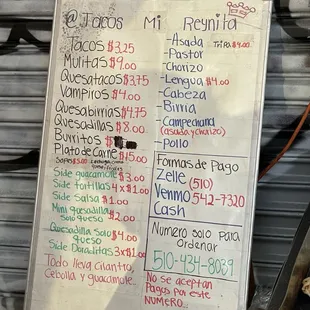 @Tacos Mi Reynita
Tacos $3.25
Mulitas $9.00
Quesatacos $3.75
Vampiros $4.00
Quesabirrias $4.75
Quesadillas $8.00
Burritos $
Plato de Carne $15.00
Side guacamole $3.00
Side tortillas 4x$1.00
Side Salsa $1.00
Mini quesadilla
Solo queso $2.00
Quesadilla Solo
queso $4.00
Side Doraditas 3x$1.00
Todo lleva Cilantro,
Cebolla y guacamole..
-Asada
Tripa $4.00
-Pastor
-Chorizo
-Lengua $4.00
-Cabeza
-Birria
-Campechana
(asada y chorizo)
-Pollo
Formas de Pago
Zelle (510)
Venmo 542-7320
Cash
Numero solo para
Ordenar
510-434-8039
No se aceptan
Pagos por este
NUMERO...